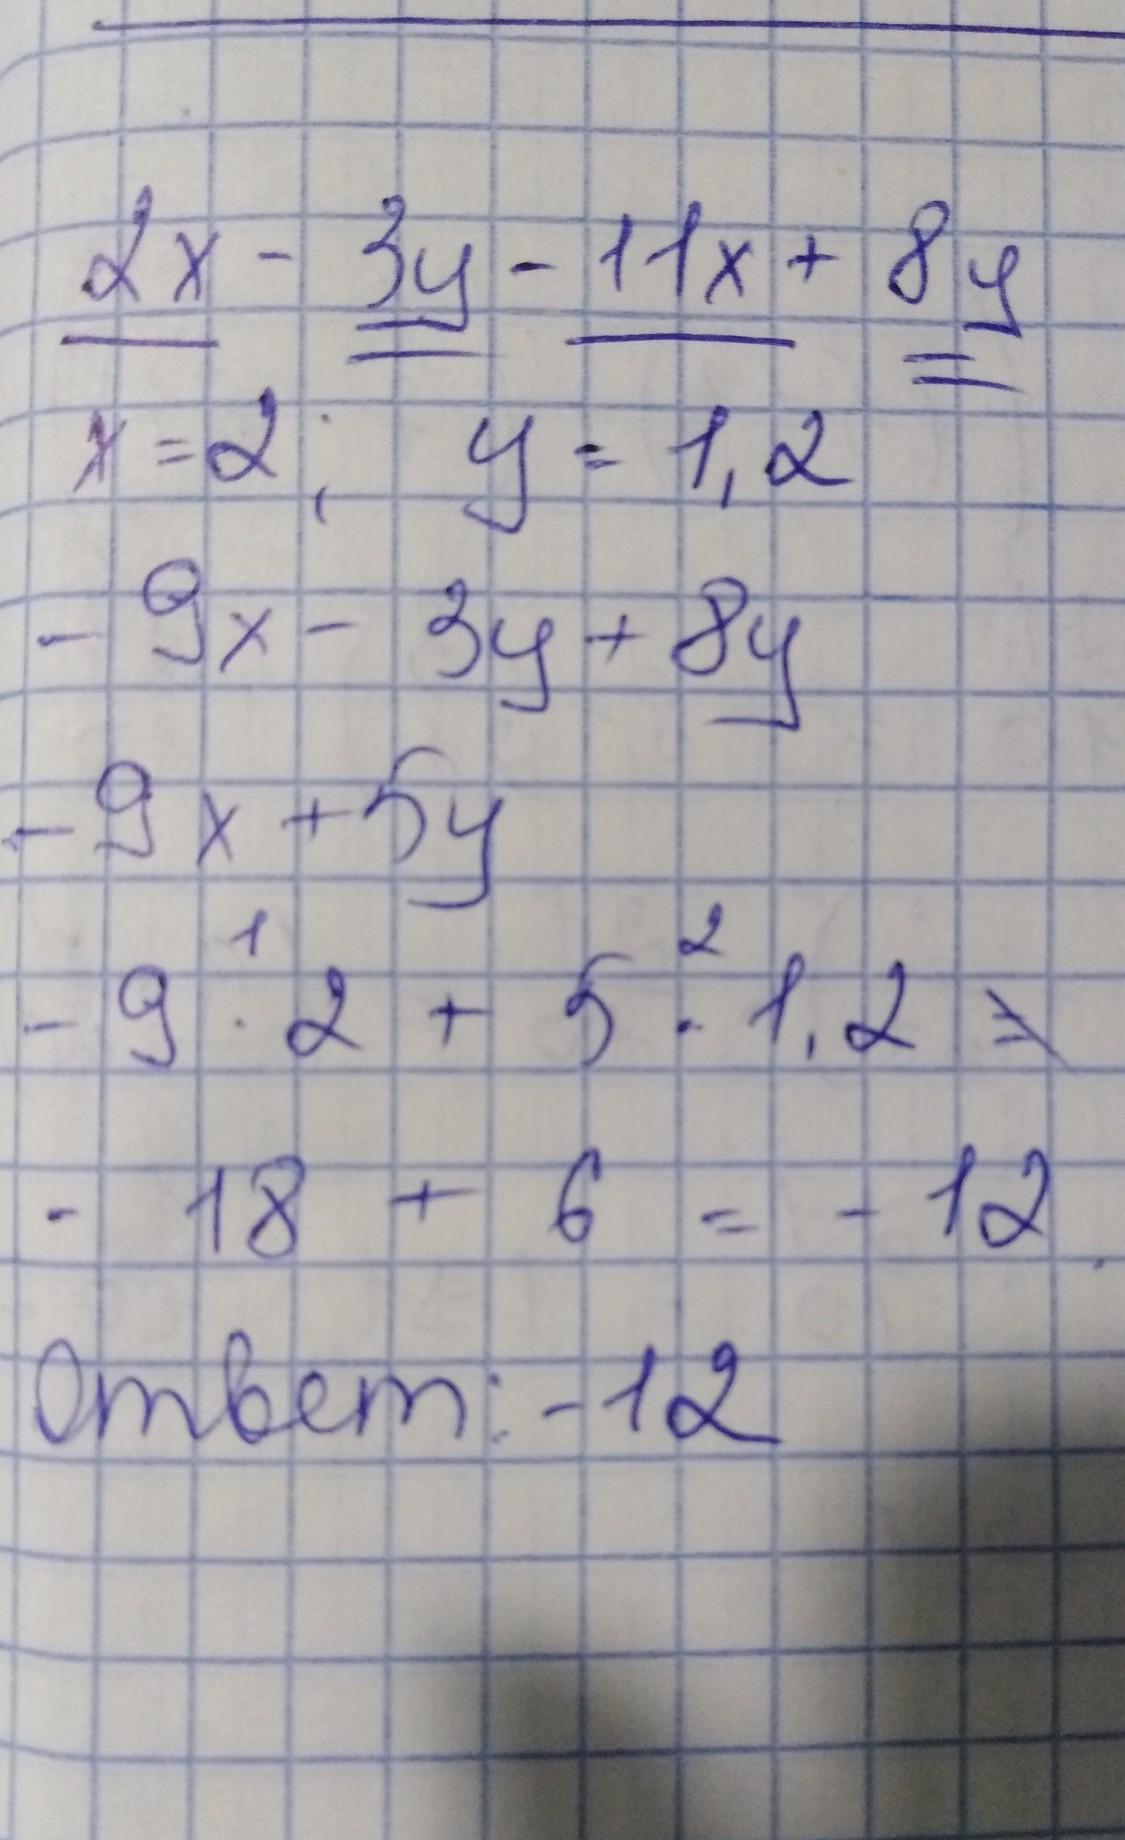 2x - 3y - 11x + 8y
x = 2; y = 1,2
- 9x - 3y + 8y
- 9x + 5y
1 2
- 9 · 2 + 5 · 1,2 =
- 18 + 6 = - 12
Ответ: -12